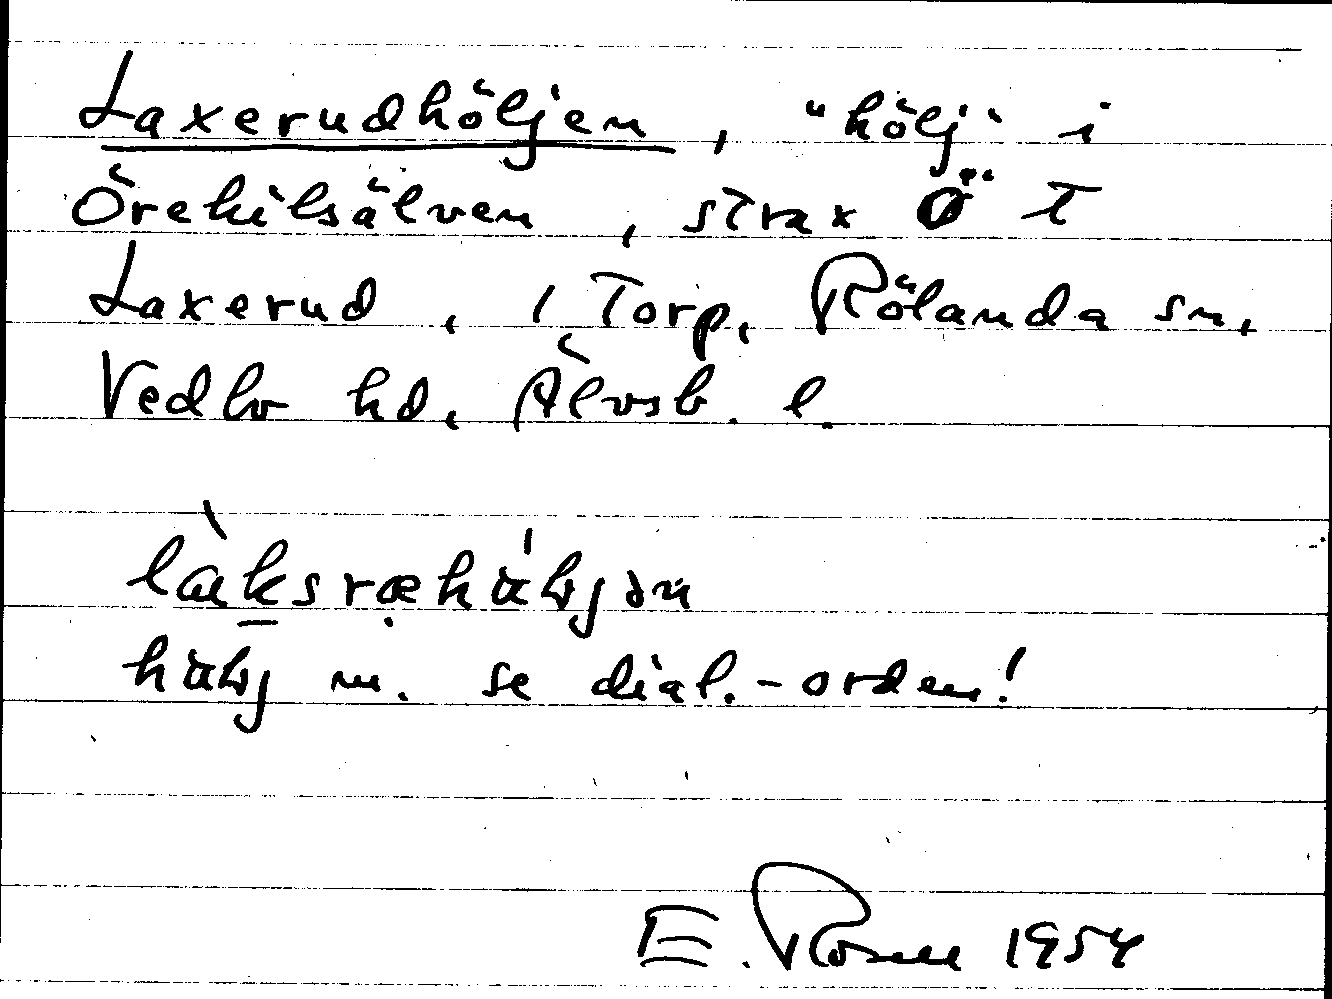 Laxerudhöljen, "hölj" i
Örekilsälven, strax Ö T
Laxerud, i Torp, Rölanda sn,
Vedbo hd, Älvsb. l.
hölj m. se dial.-orden!
E. Rosell 1954